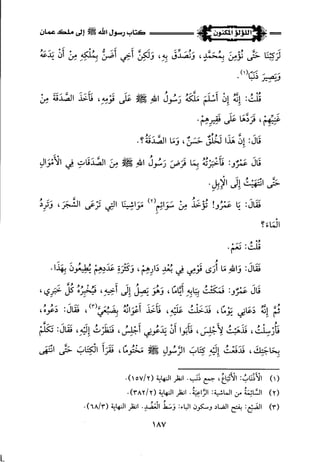 اللؤلؤ المكنون
كتاب رسول الله ﷺ إلى ملك عمان
تَرَكْتَنَا حَتَّى نُؤْمِنَ بِمُحَمَّدٍ، وَنُصَدِّقَ بِهِ، وَلَكِنَّ أَخِي أَضَنُّ بِمُلْكِهِ مِنْ أَنْ يَدَعَهُ
وَيَصِيرَ ذَنَبًا(١).
قُلْتُ: إِنَّهُ إِنْ أَسْلَمَ مَلَّكَهُ رَسُولُ اللهِ ﷺ عَلَى قَوْمِهِ، فَأَخَذَ الصَّدَقَةَ مِنْ
غَنِيِّهِمْ، فَرَدَّهَا عَلَى فَقِيرِهِمْ.
قَالَ: إِنَّ هَذَا لَخُلُقٌ حَسَنٌ، وَمَا الصَّدَقَةُ؟
قَالَ عَمْرٌو: فَأَخْبَرْتُهُ بِمَا فَرَضَ رَسُولُ اللهِ ﷺ مِنَ الصَّدَقَاتِ فِي الْأَمْوَالِ
حَتَّى انْتَهَيْتُ إِلَى الْإِبِلِ.
فَقَالَ: يَا عَمْرُو! تُؤْخَذُ مِنْ سَوَائِمِ(٢) مَوَاشِينَا الَّتِي تَرْعَى الشَّجَرَ، وَتَرِدُ
الْمَاءَ؟
قُلْتُ: نَعَمْ.
فَقَالَ: وَاللهِ مَا أَرَى قَوْمِي فِي بُعْدِ دَارِهِمْ، وَكَثْرَةِ عَدَدِهِمْ يُطِيعُونَ بِهَذَا.
قَالَ عَمْرٌو: فَمَكَثْتُ بِبَابِهِ أَيَّامًا، وَهُوَ يَصِلُ إِلَى أَخِيهِ، فَيُخْبِرُهُ كُلَّ خَبَرِي،
ثُمَّ إِنَّهُ دَعَانِي يَوْمًا، فَدَخَلْتُ عَلَيْهِ، فَأَخَذَ أَعْوَانُهُ بِضَبْعَيَّ(٣)، فَقَالَ: دَعُوهُ،
فَأُرْسِلْتُ، فَذَهَبْتُ لِأَجْلِسَ، فَأَبَوْا أَنْ يَدَعُونِي أَجْلِسُ، فَنَظَرْتُ إِلَيْهِ، فَقَالَ: تَكَلَّمْ
بِحَاجَتِكَ، فَدَفَعْتُ إِلَيْهِ كِتَابَ الرَّسُولِ ﷺ مَخْتُومًا، فَقَرَأَ الْكِتَابَ حَتَّى انْتَهَى
(١) الأَذْنَابُ: الأَتْبَاعُ، جمع ذَنَب. انظر النهاية (١٥٧/٢).
(٢) السَّائِمَةُ من الماشية: الرَّاعِيَةُ. انظر النهاية (٣٨٢/٢).
(٣) الضَّبْعُ: بفتح الضاد وسكون الباء: وَسَطُ العَضُدِ. انظر النهاية (٦٨/٣).
١٨٧